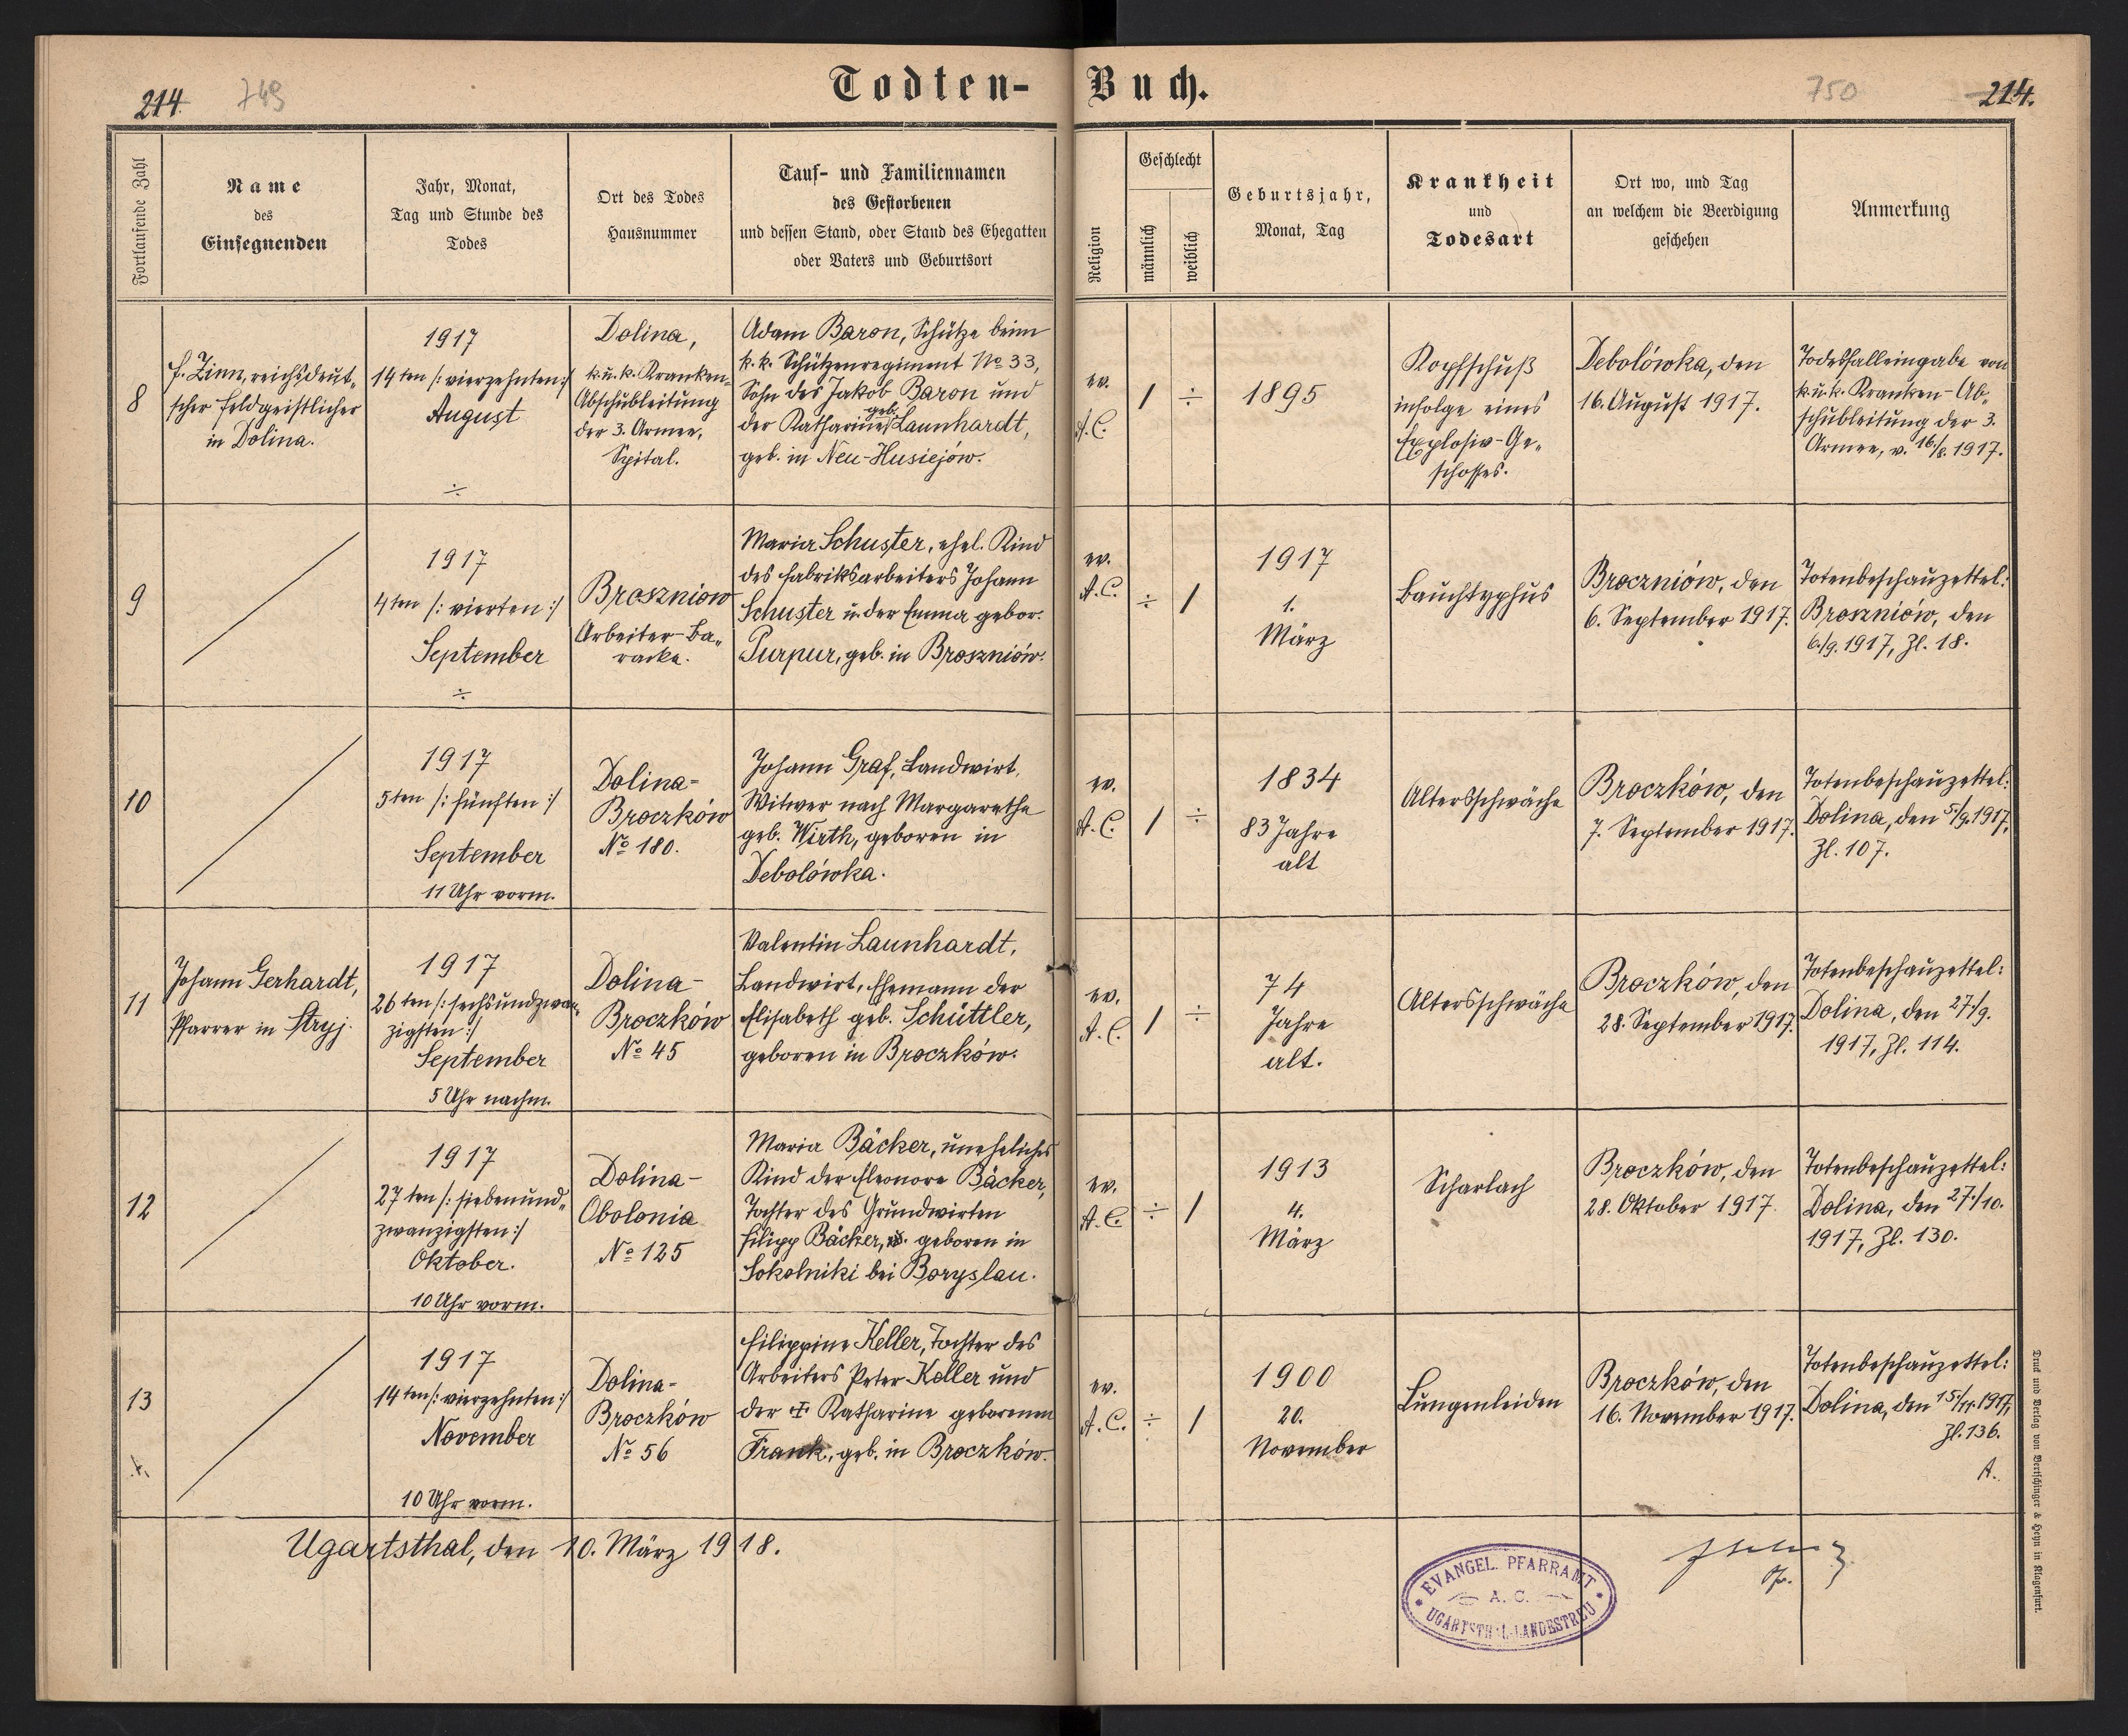 Todten-Buch.
214. 749
750 214.
Fortlaufende Zahl
Name
des
Einsegnenden
Jahr, Monat,
Tag und Stunde des
Todes
Ort des Todes
Hausnummer
Tauf- und Familiennamen
des Gestorbenen
und dessen Stand, oder Stand des Ehegatten
oder Vaters und Geburtsort
Religion
Geschlecht
männlich
weiblich
Geburtsjahr,
Monat, Tag
Krankheit
und
Todesart
Ort wo, und Tag
an welchem die Beerdigung
geschehen
Anmerkung
8
F. Zinn, reichsdeut-
scher Feldgeistlicher
in Dolina.
1917
14ten /: vierzehnten :/
August
÷
Dolina,
k. u. k. Kranken-
Abschubleitung
der 3. Armee,
Spital.
Adam Baron, Schütze beim
k. k. Schützenregiment No 33,
Sohn des Jakob Baron und
der Katharine geb. Launhardt,
geb. in Neu-Husiejów.
ev.
A.C.
1
÷
1895
Kopfschuß
infolge eines
Explosiv-Ge-
schosses.
Debolówka, den
16. August 1917.
Todesfalleingabe von
k. u. k. Kranken-Ab-
schubleitung der 3.
Armee, v. 16./8. 1917.
9
1917
4ten /: vierten :/
September
÷
Broszniow
Arbeiter-Ba-
racke.
Maria Schuster, ehel. Kind
des Fabriksarbeiters Johann
Schuster u. der Emma gebor.
Purpur, geb. in Broszniów.
ev.
A.C.
÷
1
1917
1.
März
Bauchtyphus
Broczniów, den
6. September 1917.
Totenbeschauzettel:
Broszniów, den
6./9. 1917, Zl. 18.
10
1917
5ten /: fünften :/
September
11 Uhr vorm.
Dolina-
Broczków
No 180.
Johann Graf, Landwirt,
Witwer nach Margarethe
geb. Wirth, geboren in
Debolówka.
ev.
A.C.
1
÷
1834
83 Jahre
alt
Altersschwäche
Broczków, den
7. September 1917.
Totenbeschauzettel:
Dolina, den 5./9. 1917,
Zl. 107.
11
Johann Gerhardt,
Pfarrer in Stryj.
1917
26ten /: sechsundzwan-
zigsten :/
September
5 Uhr nachm.
Dolina-
Broczków
No 45
Valentin Launhardt,
Landwirt, Ehemann der
Elisabeth geb. Schüttler,
geboren in Broczków.
ev.
A.C.
1
÷
74
Jahre
alt.
Altersschwäche
Broczków, den
28. September 1917.
Totenbeschauzettel:
Dolina, den 27./9.
1917, Zl. 114.
12
1917
27ten /: siebenund-
zwanzigsten :/
Oktober.
10 Uhr vorm.
Dolina-
Obolonia
No 125
Maria Bäcker, uneheliches
Kind der Eleonore Bäcker,
Tochter des Grundwirten
Filipp Bäcker, geboren in
Sokolniki bei Boryslau.
ev.
A.C.
÷
1
1913
4.
März
Scharlach
Broczków, den
28. Oktober 1917.
Totenbeschauzettel:
Dolina, den 27./10.
1917, Zl. 130.
13
1917
14ten /: vierzehnten :/
November
10 Uhr vorm.
Dolina-
Broczków
No 56
Filippine Keller, Tochter des
Arbeiters Peter Keller und
der Katharine geborenen
Frank, geb. in Broczków.
ev.
A.C.
÷
1
1900
20.
November
Lungenleiden
Broczków, den
16. November 1917.
Totenbeschauzettel:
Dolina, den 15./11. 1917,
Zl. 136.
A.
Ugartsthal, den 10. März 1918.
EVANGEL. PFARRAMT
A. C.
UGARTSTHAL-LANDESTREU
Druck und Verlag von Bertschinger & Heyn in Klagenfurt.